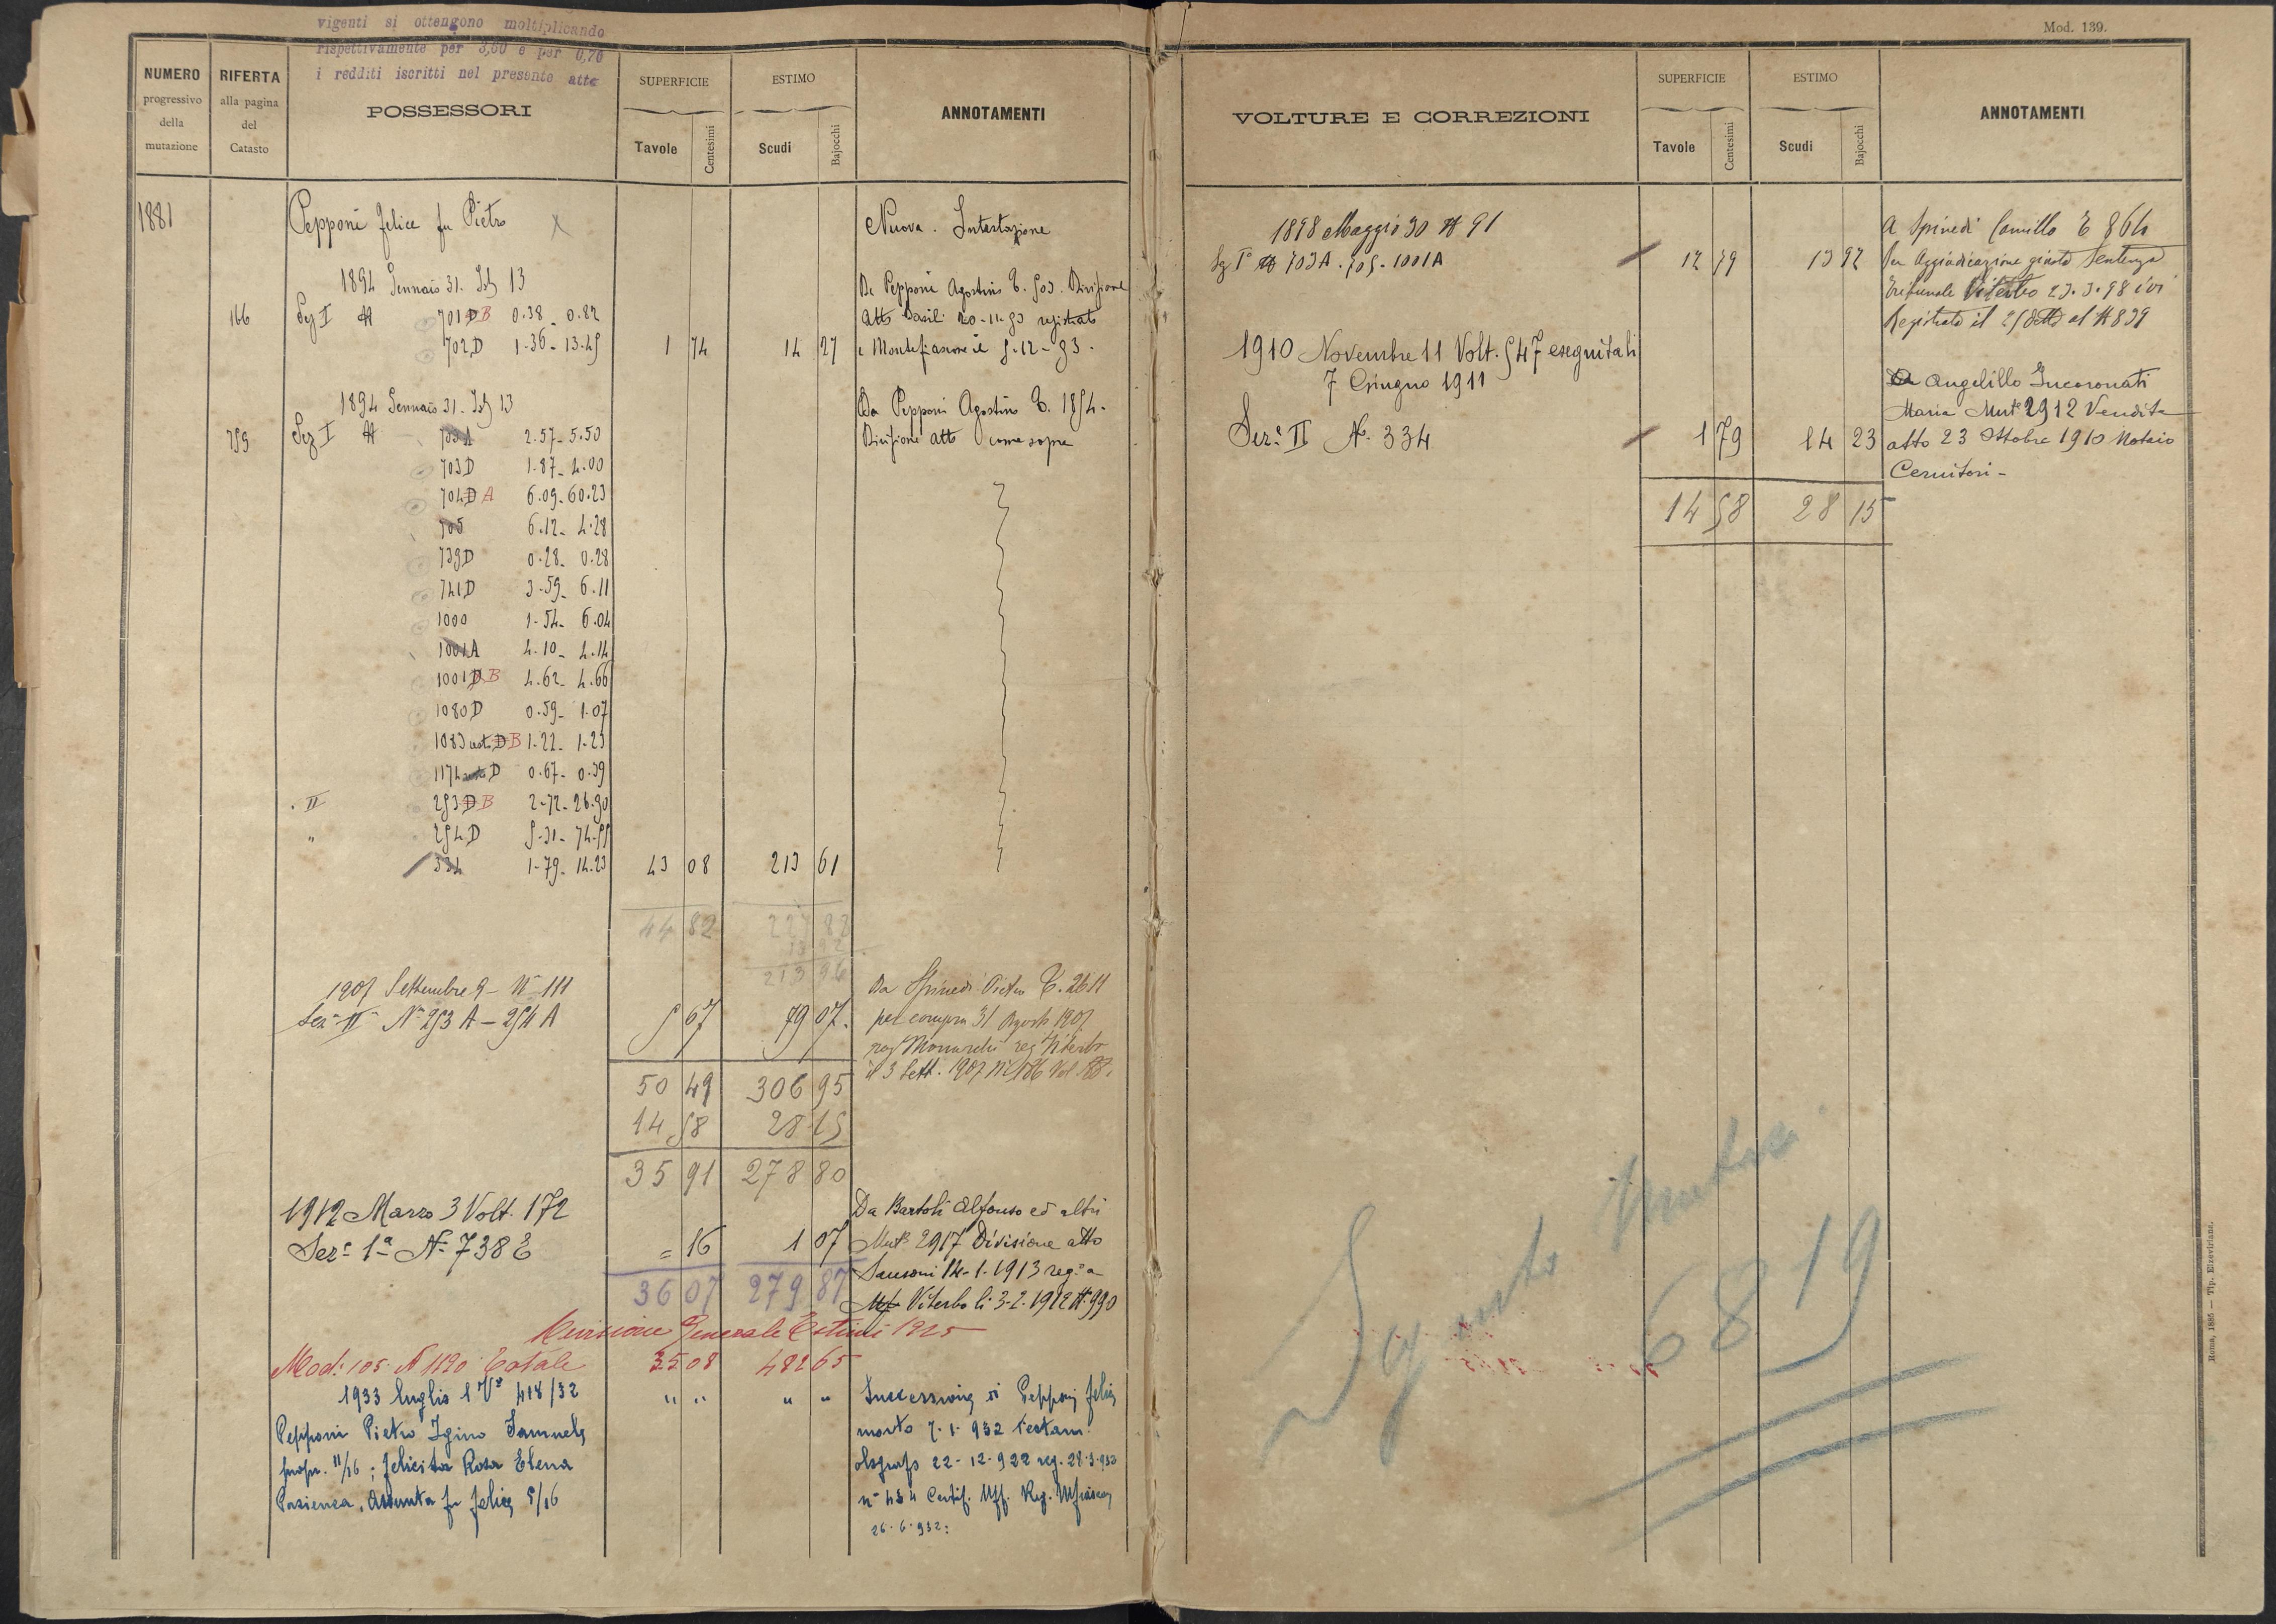 vigenti si ottengono moltiplicando
rispettivamente per 3,60 e per 0,76
i redditi iscritti nel presente atto
NUMERO
progressivo
della
mutazione
RIFERTA
alla pagina
del
Catasto
POSSESSORI
SUPERFICIE
Tavole
Centesimi
ESTIMO
Scudi
Bajocchi
ANNOTAMENTI
1881
Pepponi Felice fu Pietro
Nuova. Intestazione
1894 Gennaio 31. 13
166 Sez I N 701 D B 0.38 - 0.82
702 D 1.36 - 13.45 1 74 14 27
De Pepponi Agostino Divisione
Atto Basili registrato
a Montefiascone il
1894 Gennaio 31. 13
Sez I N 703 A 2.57 - 5.50
703 D 1.87 - 4.00
704 D A 6.09 - 60.23
705 6.12 - 4.28
739 D 0.28 - 0.28
741 D 3.59 - 6.11
1000 1.54 - 6.04
1001 A 4.10 - 4.14
1001 D B 4.62 - 4.66
1080 D 0.59 - 1.07
1083 D B 1.22 - 1.23
1174 D 0.67 - 0.39
II 253 D B 2.72 - 26.90
" 254 D
334 1.79 - 14.23 43 08 213 61
Da Pepponi Agostino
Divisione atto come sopra
44 82 227 82
13 92
213 96
1907 Settembre 9 - N 111
Sez II N 253 A - 254 A 5 67 79 07
Da Spinedi Pietro C. 2611
per compra 31 Agosto 1907
reg Viterbo
il 3 Sett. 1907
50 49 306 95
14 58 28 15
35 91 278 80
1912 Marzo 3 Volt. 172
Sez. 1a No 738 E = 16 1 07
Da Bartoli Alfonso ed altri
Mut. 2917 Divisione atto
Sansoni 14-1-1913 reg. a
Viterbo li 3-2-1912 N. 990
36 07 279 87
Revisione Generale Estimi 1925
Mod: 105 N 1120 Totale 35 08 482 65
1933 Luglio 1 V 418/32 " " " "
Pepponi Pietro Igino Samuele
propr. 11/16; Felicita Rosa Elena
Pazienza, Assunta fu Felice 5/16
Successione di Pepponi Felice
morto 7-1-932 testam.
olografo 22-12-922 reg. 28-3-932
Certif. Uff. Reg.
26-6-932:
Mod. 139.
VOLTURE E CORREZIONI
SUPERFICIE
Tavole
Centesimi
ESTIMO
Scudi
Bajocchi
ANNOTAMENTI
1898 Maggio 30 N 91
Sez I N 703 A - 705 - 1001 A 12 79 13 92
A Spinedi Camillo
Per Aggiudicazione giusta Sentenza
Tribunale Viterbo 23.3.98 ivi
Registrato il al N 839
1910 Novembre 11 Volt. 547 eseguita li
7 Giugno 1911
Sez. II N. 334 1 79 14 23
Angelillo Incoronati
Maria Mut. 2912 Vendita
atto 23 Ottobre 1910 Notaio
Cernitori -
14 58 28 15
Segue
6819
Roma, 1885 — Tip. Elzeviriana.